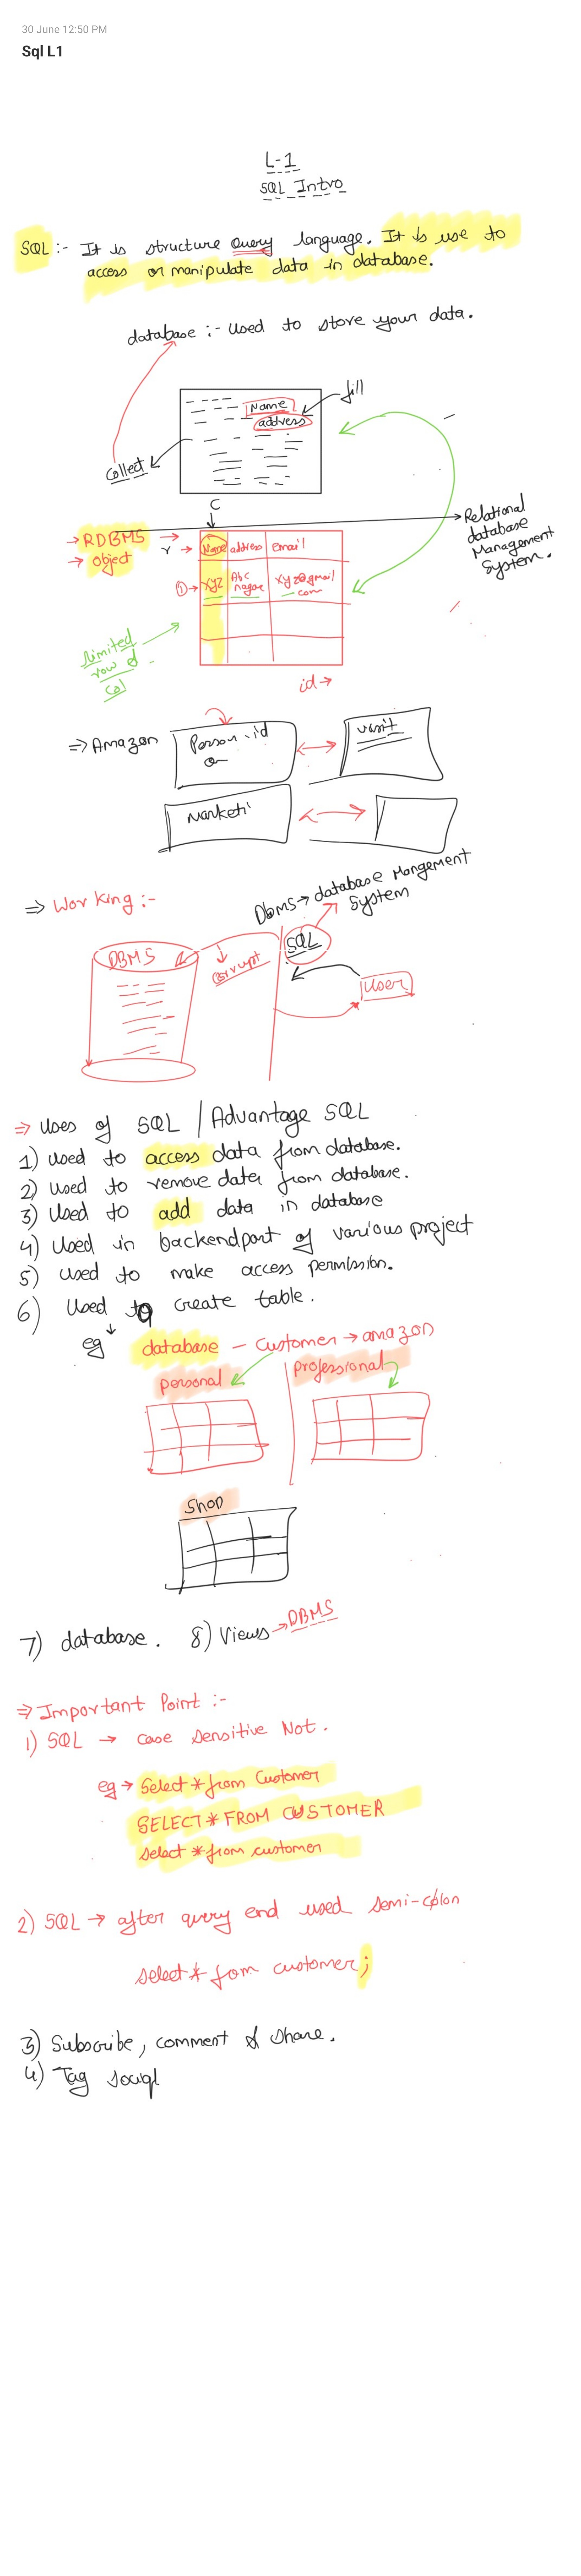 30 June 12:50 PM
Sql L1
L-1
SQL Intro
SQL :- It is structure Query language. It is use to
access or manipulate data in database.
database :- used to store your data.
fill
Name
address
Collect
C
→ RDBMS →
→ object
r →
Name address email
① → XYZ Abc nagar xyz@gmail
com
Relational
database
Management
System.
limited
row &
Col
id →
⇒ Amazon
Person - id
visit
Marketi
⇒ Working :-
Dbms → database Mangement
System
DBMS
Corrupt
SQL
User
⇒ Uses of SQL / Advantage SQL
1) used to access data from database.
2) used to remove data from database.
3) Used to add data in database
4) Used in backendpart of various project
5) used to make access permission.
6) Used to create table.
eg database - Customer → amazon
personal
professional
Shop
7) database. 8) Views → DBMS
⇒ Important Point :-
1) SQL → case sensitive Not.
eg → Select * from Customer
SELECT * FROM CUSTOMER
select * from customer
2) SQL → after query end used semi-colon
select * fom customer;
3) Subscribe, comment & share.
4) Tag